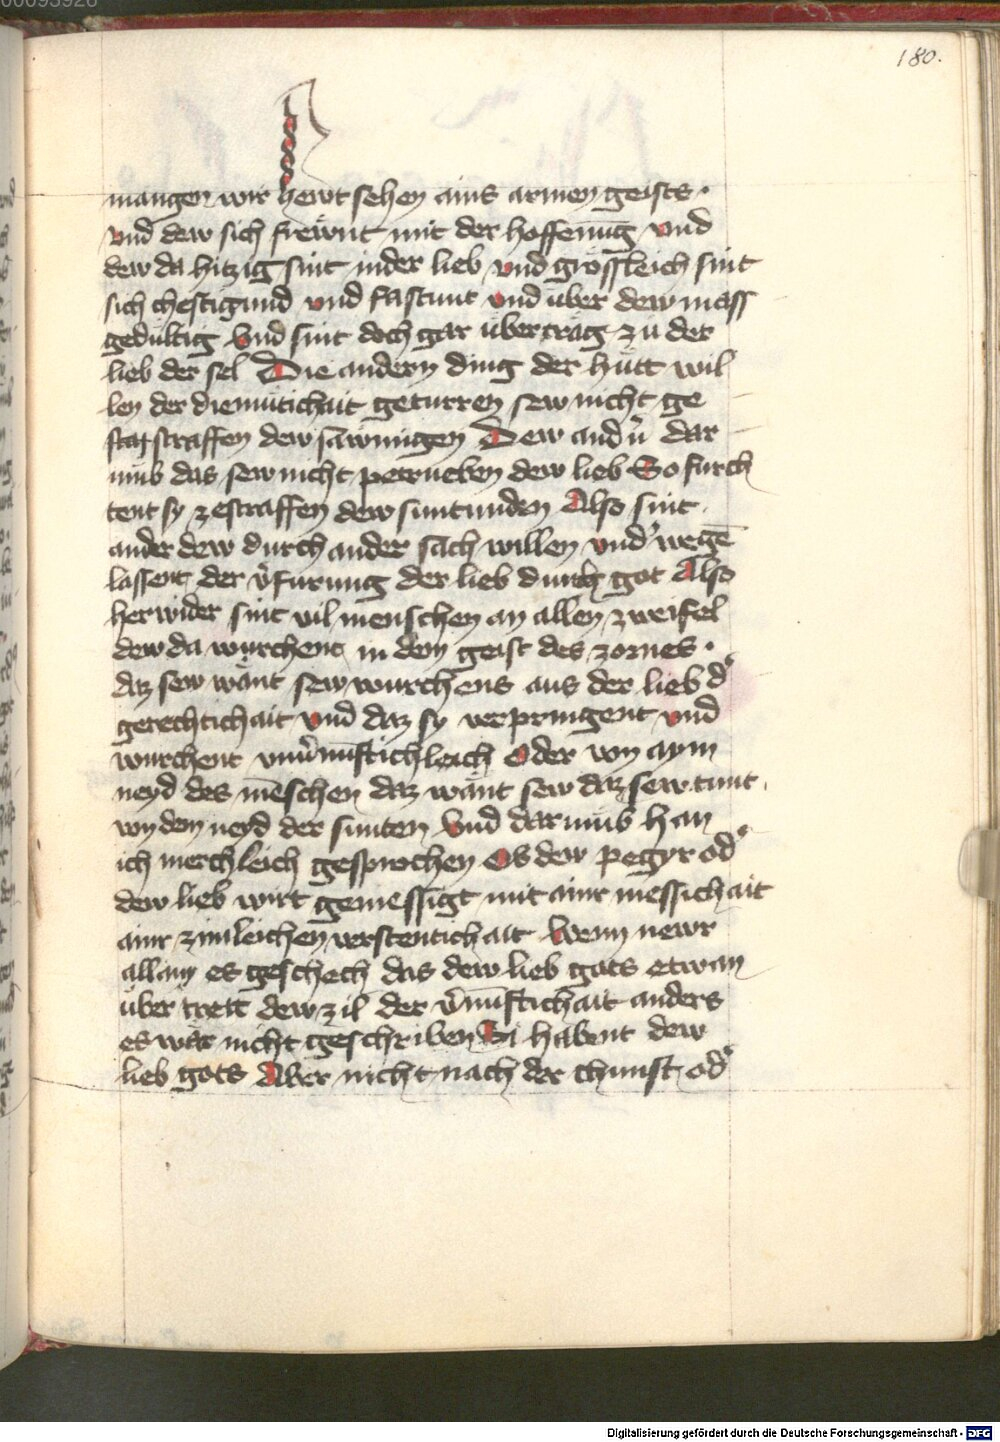 00093926
180.
mangen wir hewt sehen ains armen geists ·
vnd dew sich frewnt mit der hoffenu͞g vnd
dew da hitzig sint in der lieb vnd grössleich sint
sich chestigund vnd fastunt vnd über dew mass
gedültig vnd sint doch gar überträg zu der
lieb der sel Die andern ding der hütt wil
len der diemütichait geturren sew nicht ge
straffen dew sawmigen Dew and͛n dar
umb das sew nicht petrueben dew lieb So furch
tent sy ze straffen dew suntunden Also sint
ander dew durch ander sach willen vnd͛ wege͞
lassent der v͛furung der lieb durch got Also
herwider sint vil menschen an allen zweifel
dew da wurchent in dem geist des zornes ·
daz sew wänt sew wurchens aus der lieb d͛
gerechtichait vnd daz sy verpringent vnd
wurchent vnu͛nu͞ftichleich Oder von aym
neyd des me͞schen daz wänt sew daz sew tunt
von dem neyd der sunten Vnd darumb han
ich merchleich gesprochen Ob dew pegyr od͛
dew lieb wirt gemessigt mit ainr messichait
ainr zimleichen verstentichait Wenn newr
allain es geschech das dew lieb gots etwan
über trett dew zil der v͛nu͞ftichait anders
es wär nicht geschriben Si habent dew
lieb gots Aber nicht nach der chunst od͛
Digitalisierung gefördert durch die Deutsche Forschungsgemeinschaft - DFG